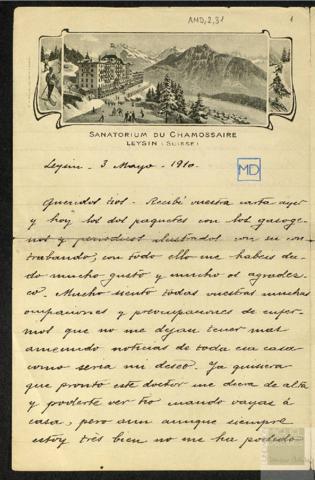 AMD,2,31
1
SANATORIUM DU CHAMOSSAIRE
LEYSIN (SUISSE)
Leysin - 3 Mayo - 1910.
MD
Queridos tios - Recibi vuestra carta ayer
y hoy los dos paquetes con los gasoge-
nos y periodicos ilustrados con su con
trabando, con todo ello me habeis da-
do mucho gusto y mucho os agradez-
co. Mucho siento todas vuestras muchas
ocupaciones y preocupaciones de enfer-
mos que no me dejan tener mas
amenudo noticias de toda esa casa
como seria mi deseo. Ya quisiera
que pronto este doctor me diera de alta
y poderte ver tio cuando vayas á
casa, pero aun aunque siempre
estoy très bien no me ha podido